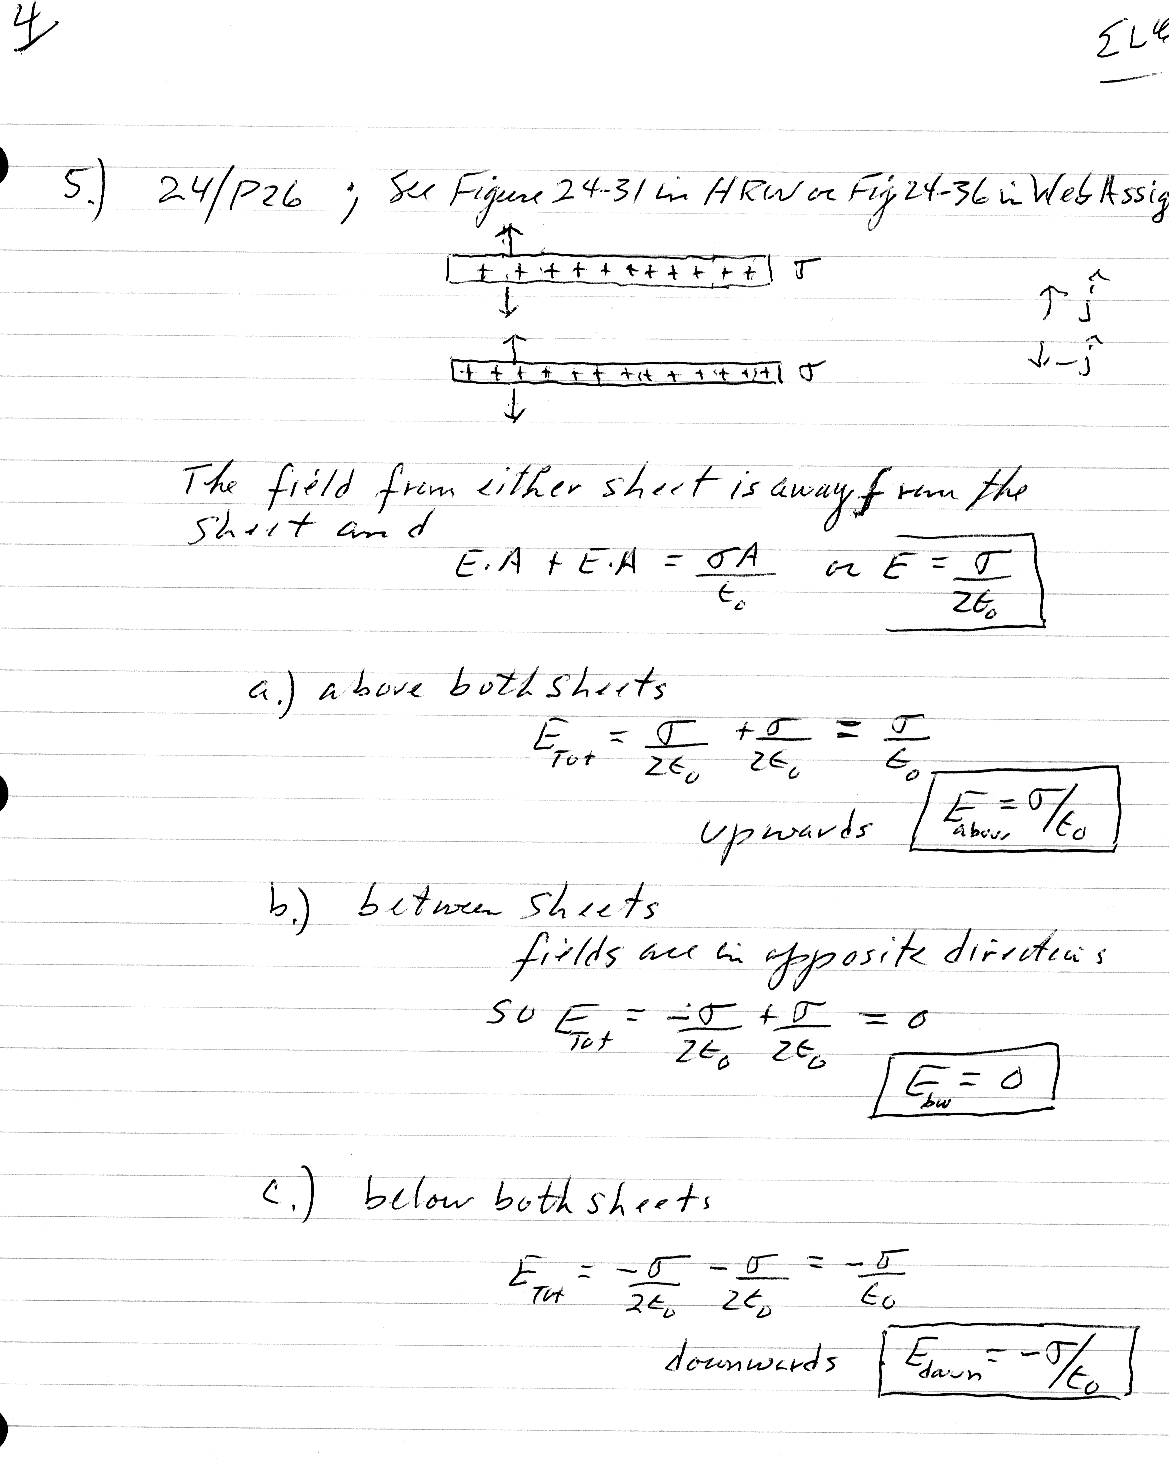 4
5.) 24/P26 ; See Figure 24-31 in HRW or Fig 24-36 in WebAssig
+ + + + + + + + + + + σ
↑ ĵ
+ + + + + + + + + + + + σ
↓ -ĵ
The field from either sheet is away from the
sheet and
E·A + E·A = σA/ε₀ or E = σ/2ε₀
a.) above both sheets
E_Tot = σ/2ε₀ + σ/2ε₀ = σ/ε₀
upwards E_above = σ/ε₀
b.) between sheets
fields are in opposite directions
so E_Tot = -σ/2ε₀ + σ/2ε₀ = 0
E_bw = 0
c.) below both sheets
E_Tot = -σ/2ε₀ - σ/2ε₀ = -σ/ε₀
downwards E_down = -σ/ε₀